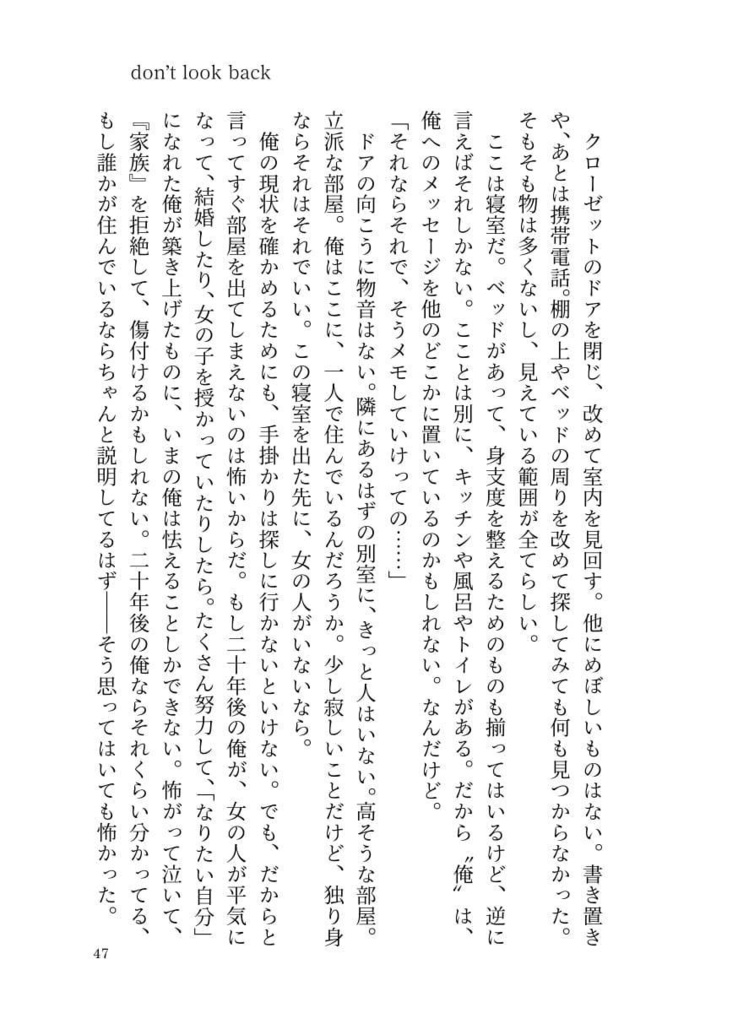 don't look back
クローゼットのドアを閉じ、改めて室内を見回す。他にめぼしいものはない。書き置き
や、あとは携帯電話。棚の上やベッドの周りを改めて探してみても何も見つからなかった。
そもそも物は多くないし、見えている範囲が全てらしい。
ここは寝室だ。ベッドがあって、身支度を整えるためのものも揃ってはいるけど、逆に
言えばそれしかない。こことは別に、キッチンや風呂やトイレがある。だから〝俺〟は、
俺へのメッセージを他のどこかに置いているのかもしれない。なんだけど。
「それならそれで、そうメモしていけっての……」
ドアの向こうに物音はない。隣にあるはずの別室に、きっと人はいない。高そうな部屋。
立派な部屋。俺はここに、一人で住んでいるんだろうか。少し寂しいことだけど、独り身
ならそれはそれでいい。この寝室を出た先に、女の人がいないなら。
俺の現状を確かめるためにも、手掛かりは探しに行かないといけない。でも、だからと
言ってすぐ部屋を出てしまえないのは怖いからだ。もし二十年後の俺が、女の人が平気に
なって、結婚したり、女の子を授かっていたりしたら。たくさん努力して、「なりたい自分」
になれた俺が築き上げたものに、いまの俺は怯えることしかできない。怖がって泣いて、
『家族』を拒絶して、傷付けるかもしれない。二十年後の俺ならそれくらい分かってる、
もし誰かが住んでいるならちゃんと説明してるはず――そう思ってはいても怖かった。
47